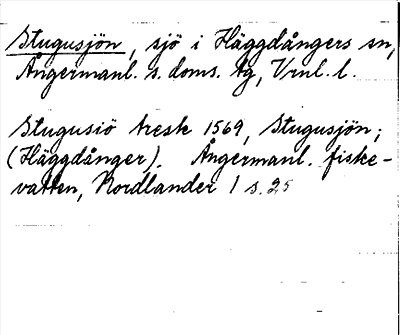 Stugusjön, sjö i Häggdångers sn,
Ångermanl. s. doms. tg, Vrnl. l.
Stugusiö tresk 1569, Stugusjön;
(Häggdånger). Ångermanl. fiske-
vatten, Nordlander 1 s. 25